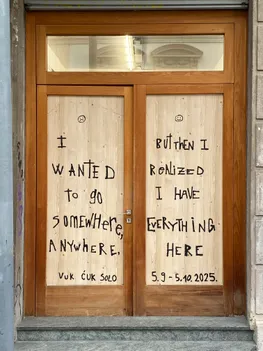 I
WANTED
to go
SOMEWHERE,
ANYWHERE.
VUK ĆUK SOLO
BUT THEN I
RONIZED
I HAVE
EVERYTHING
HERE
5.9 - 5.10.2025.